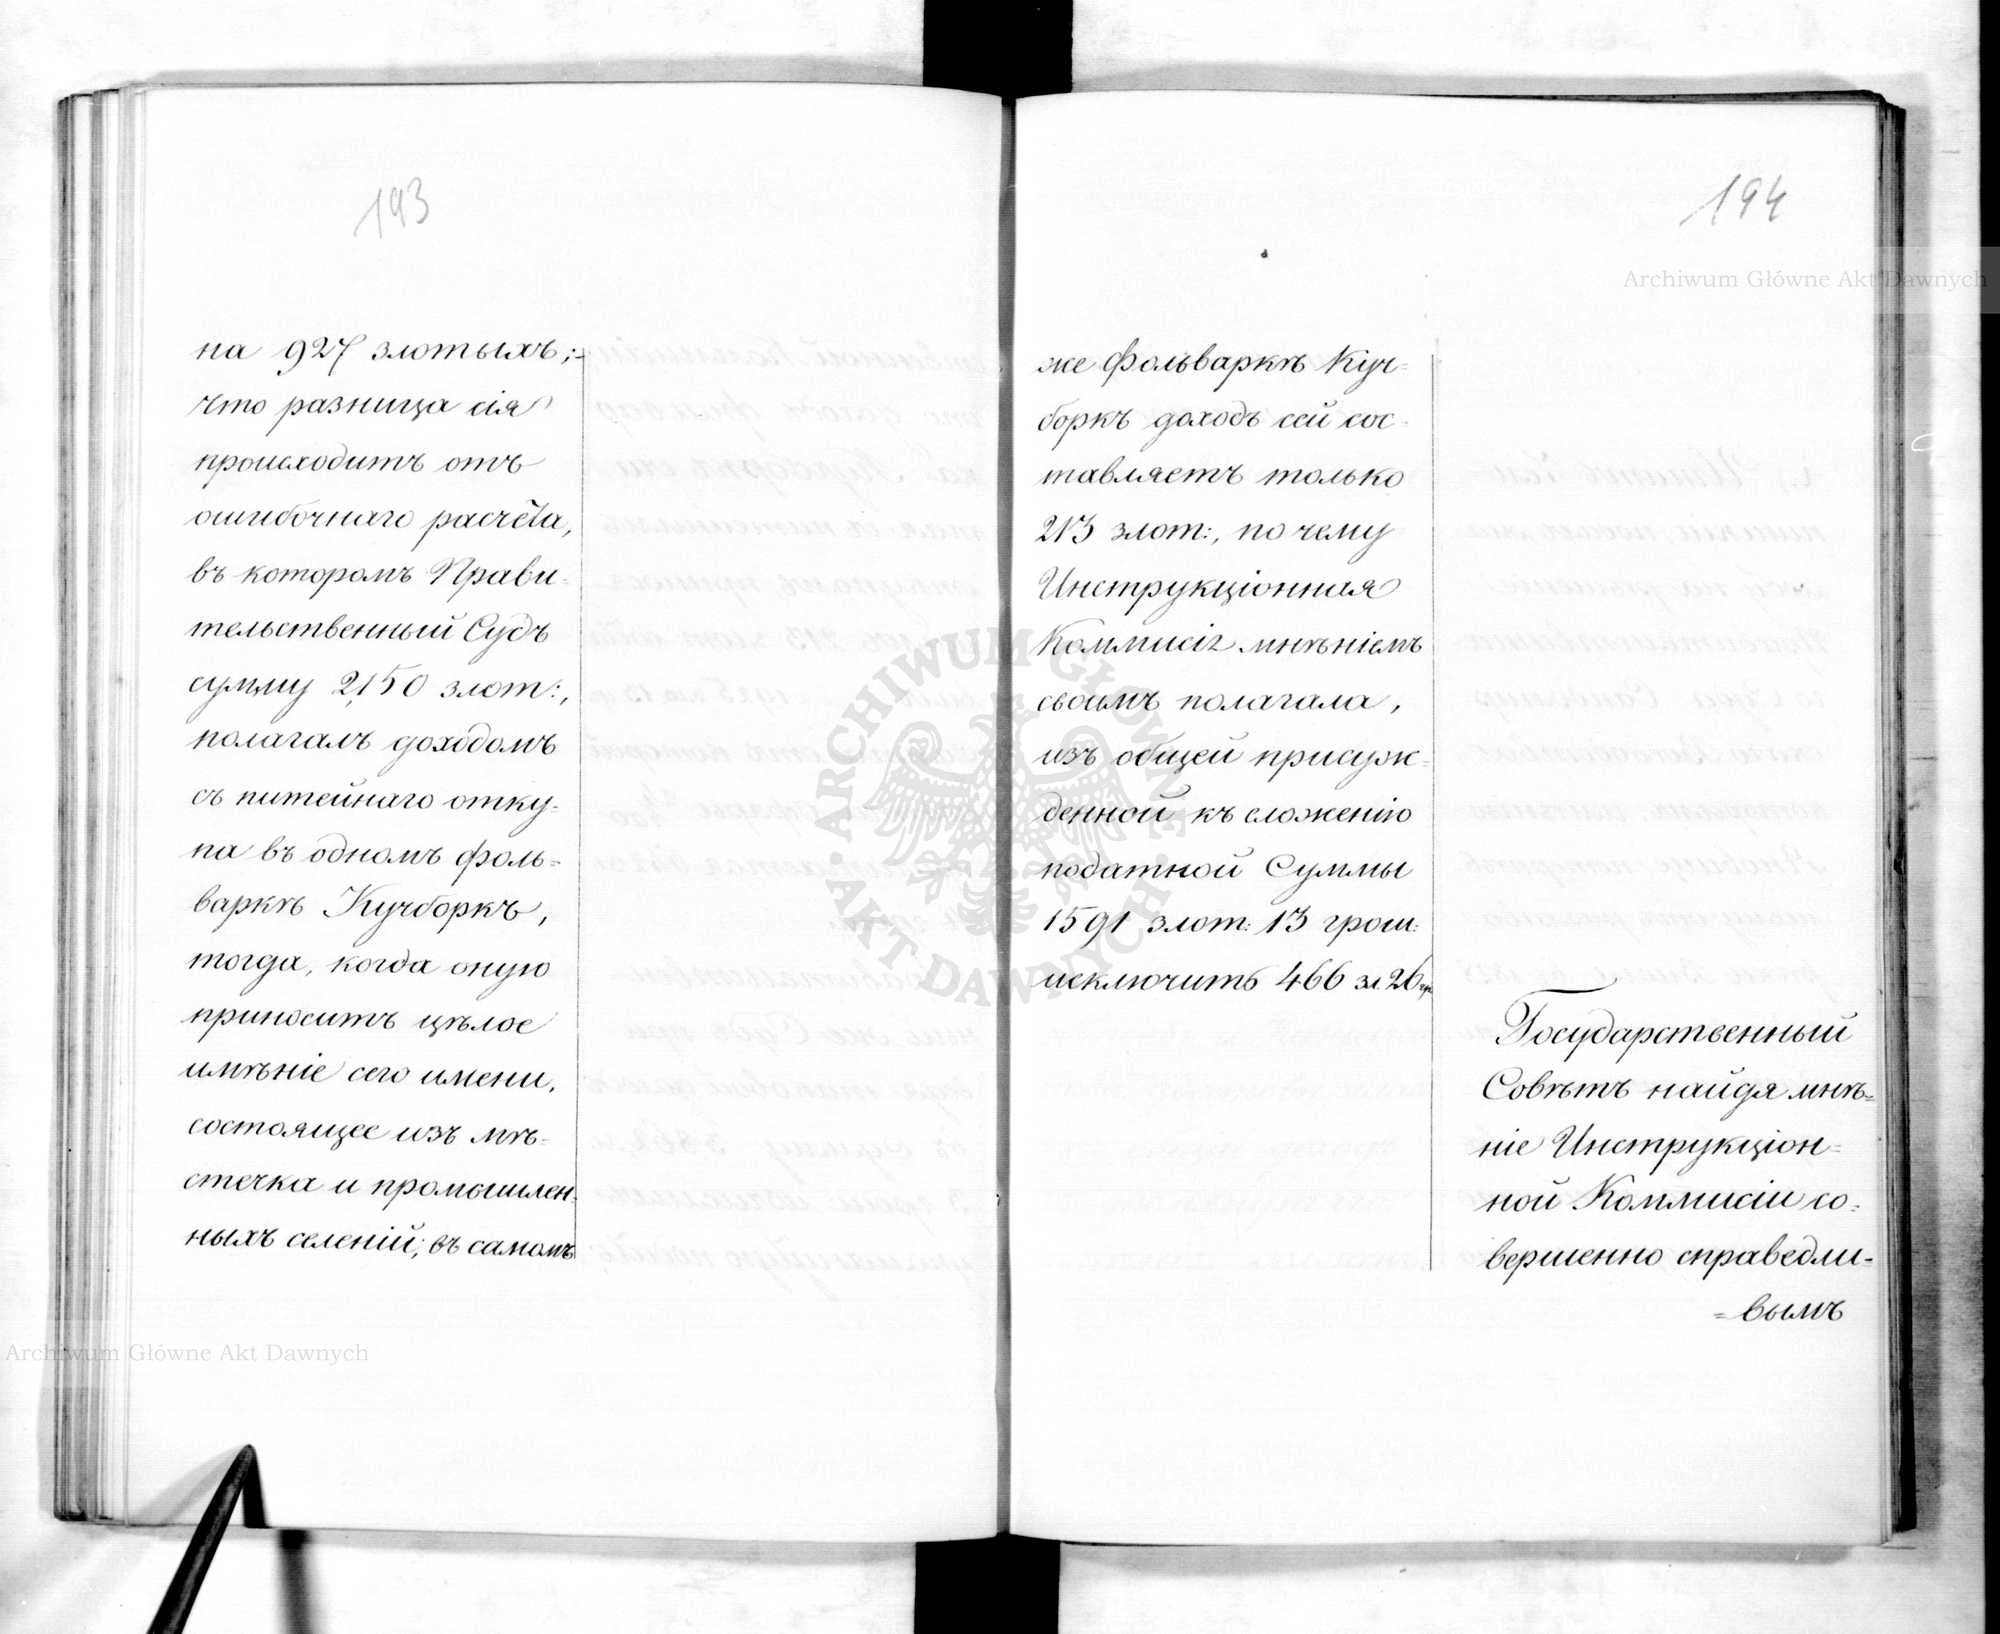 193
на 927 злотыхъ;-
что разница сія
происходитъ отъ
ошибочнаго расчёта,
въ которомъ Прави-
тельственный Судъ
сумму 2,150 злот:,
полагалъ доходомъ
съ питейнаго отку-
па въ одномъ фоль-
варкѣ Кучборкъ,
тогда, когда оную
приноситъ цѣлое
имѣніе сего имени,
состоящее изъ мѣ-
стечка и промышлен-
ныхъ селеній; въ самомъ
194
же фольваркѣ Куч-
боркъ доходъ сей сос-
тавляетъ только
213 злот:, по чему
Инструкціонная
Коммисія мнѣніемъ
своимъ полагала,
изъ общей присуж-
денной къ сложенію
податной Суммы
1591 злот: 13 грош:
исключить 466 зл. 26 гр.
Государственный
Совѣтъ найдя мнѣ-
ніе Инструкціон-
ной Коммисіи со-
вершенно справедли-
=вымъ
Archiwum Główne Akt Dawnych
Archiwum Główne Akt Dawnych
ARCHIWUM GŁÓWNE · AKT DAWNYCH ·